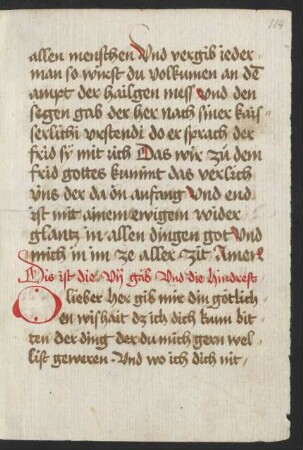 114
allen menschen Vnd vergib ieder
man so wirst du volkumen an dē
ampt der hailgen mess Vnd den
segen gab der her nach siner kais
serlichi vrstendi do er sprach der
frid sÿ mit üch Das wir zů dem
frid gottes kumint das verlich
vns der da on anfang Vnd end
ist mit ainem ewigem wider
glantz in allen dingen got Vnd
mich in im ze aller zit Amen
Dis ist die Vij gab Vnd die hindrest
O lieber her gib mir din götlich
en wishait dz ich dich kunn bit
ten der ding der du mich gern wel
list geweren Vnd wo ich dich nit